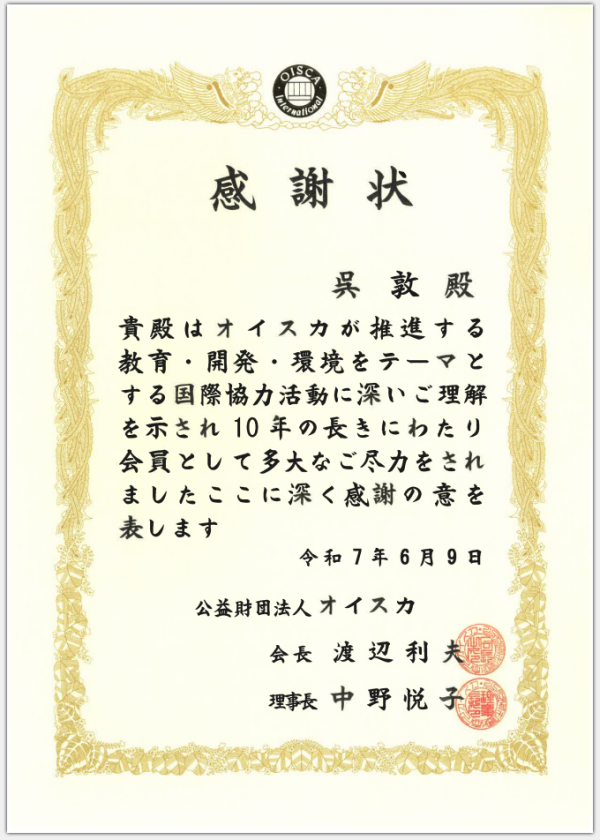 OISCA
International
感謝状
呉敦殿
貴殿はオイスカが推進する
教育・開発・環境をテーマと
する国際協力活動に深いご理解
を示され10年の長きにわたり
会員として多大なご尽力をされ
ましたここに深く感謝の意を
表します
令和7年6月9日
公益財団法人オイスカ
会長 渡辺利夫
理事長 中野悦子